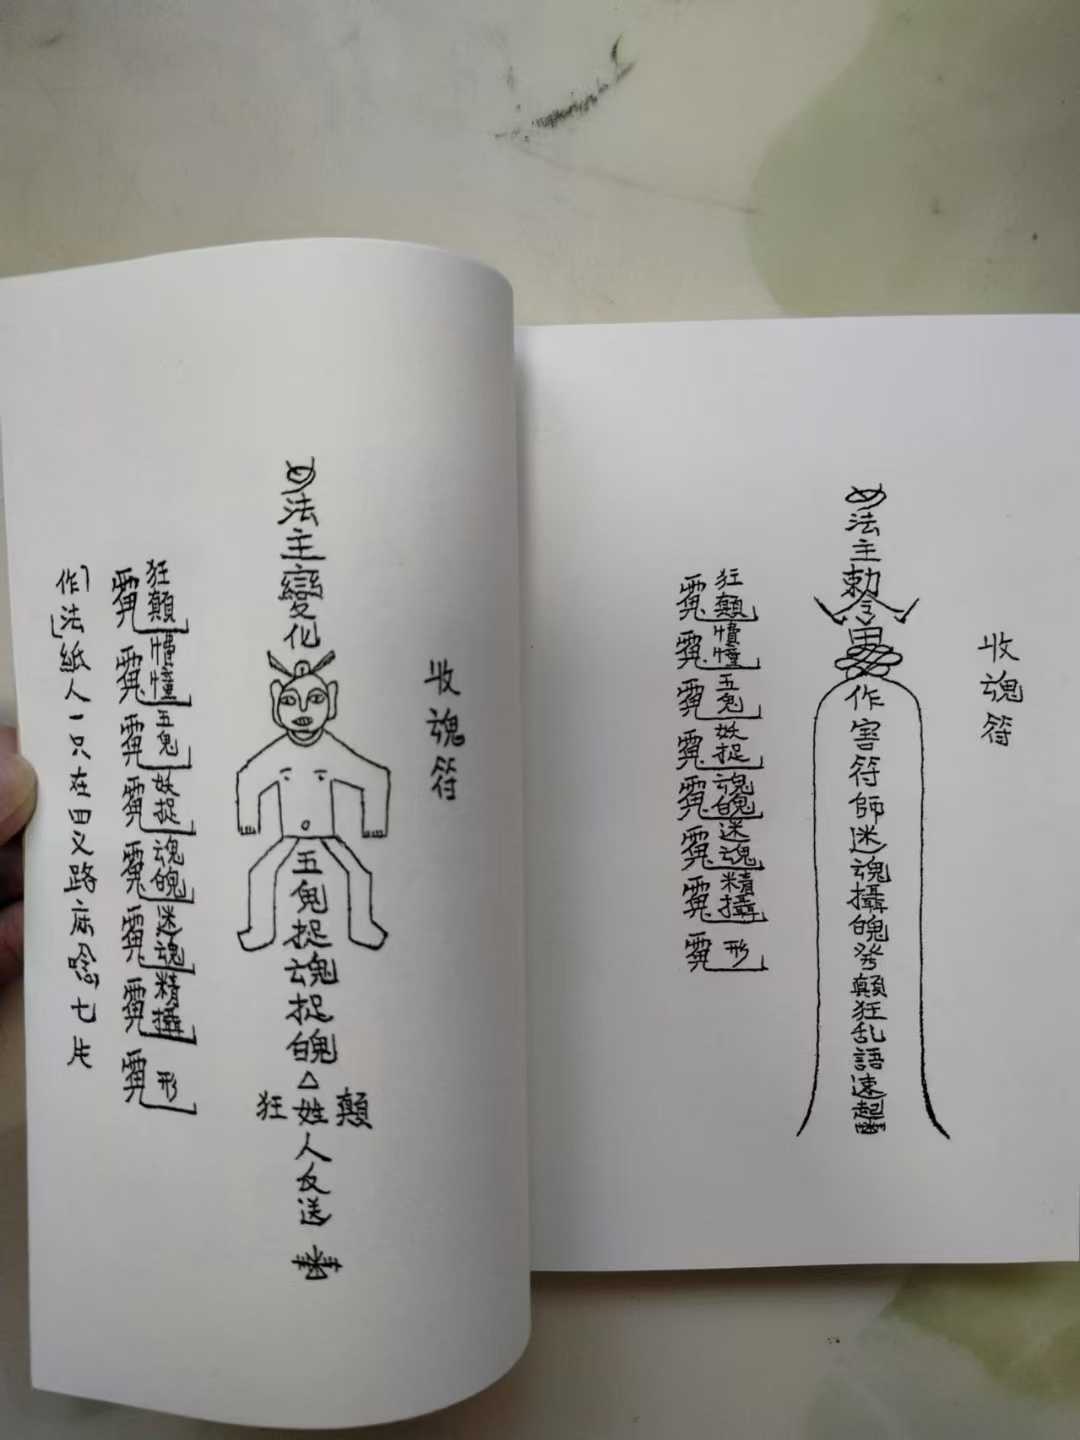 收魂符
法主勅令
作害符師迷魂攝魄發顛狂乱語速起
狂顛
憒憧
五鬼
妖捉
魂魄
迷魂
精攝
形
收魂符
法主變化
五鬼捉魂捉魄△姓人反送
狂
顛
狂顛
憒憧
五鬼
妖捉
魂魄
迷魂
精攝
形
作法紙人一只在四义路
唸七